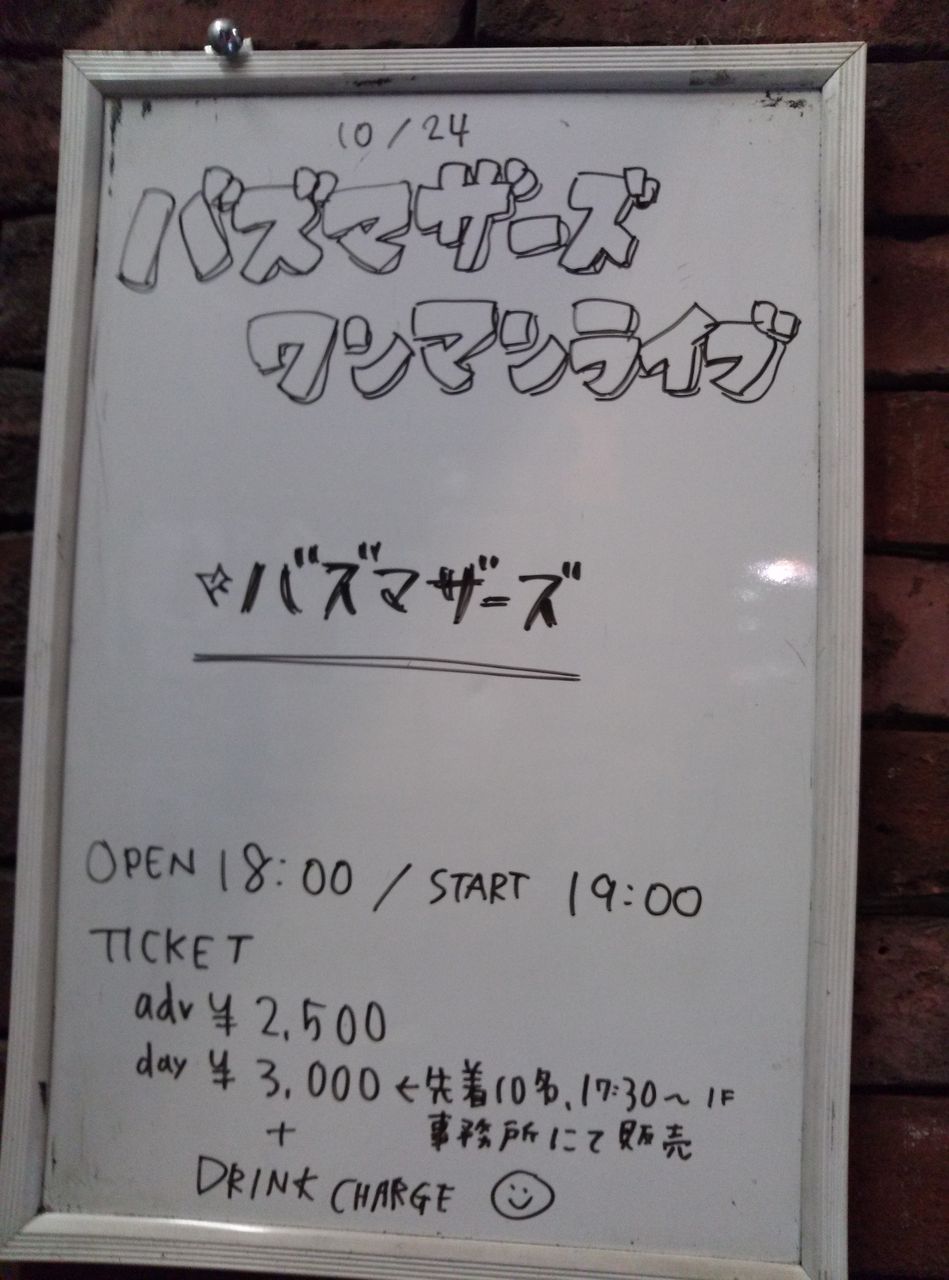 10/24
バズマザーズ
ワンマンライブ
☆バズマザーズ
OPEN 18:00 / START 19:00
TICKET
adv ¥2,500
day ¥3,000 ←先着10名、17:30～1F
+ 事務所にて販売
DRINK CHARGE ☺